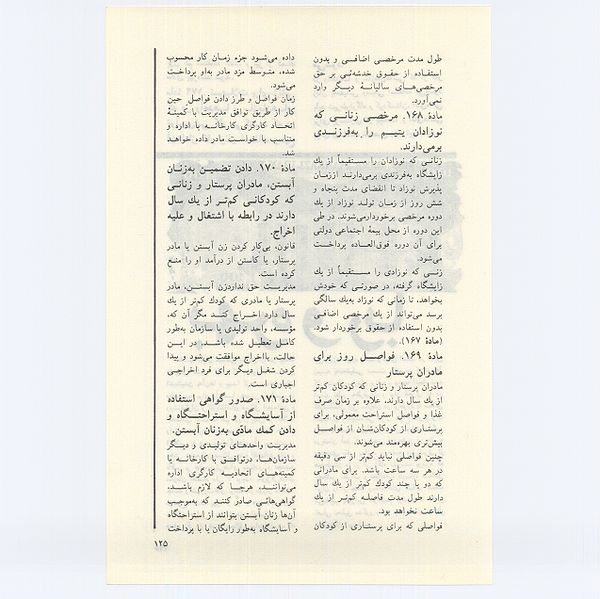 طول مدت مرخصی اضافـی و بدون
استفاده از حقوق خدشه‌ئی بر حق
مرخصی‌های سالیانهٔ دیگر وارد
نمی‌آورد.
مادهٔ ۱۶۸. مرخصی زنانی که
نوزادان یتیم را به‌فرزندی
برمی‌دارند.
زنانی که نوزادان را مستقیماً از یك
زایشگاه به‌فرزندی برمی‌دارند اززمان
پذیرش نوزاد تا انقضای مدت پنجاه و
شش روز از زمان تولد نوزاد از یك
دوره مرخصی برخوردارمی‌شوند. در طی
این دوره از محل بیمهٔ اجتماعی دولتی
برای آن دوره فوق‌العاده پرداخت
می‌شود.
زنـی که نوزادی را مستقیماً از یك
زایشگاه گرفته، در صورتـی که خودش
بخواهد، تا زمانی که نوزاد به‌یك سالگی
برسد می‌تواند از یك مرخصی اضافـی
بدون استفاده از حقوق برخوردار شود.
(مادهٔ ۱۶۷).
مادهٔ ۱۶۹. فواصـل روز برای
مادران پرستار
مادران پرستار و زنانی که کودکان کم‌تر
از یك سال دارند، علاوه بر زمان صرف
غذا و فواصل استراحت معمولی، برای
پرستـاری از کودکان‌شان از فواصـل
بیش‌تری بهره‌مند می‌شوند.
چنین فواصلی نباید کم‌تر از سی دقیقه
در هر سه ساعت باشد. برای مادرانی
که دو یا چند کودك کم‌تر از یك سال
دارند طول مدت فاصله کم‌تر از یك
ساعت نخواهد بود.
فواصلی که برای پرستاری از کودکان
داده می‌شود جزء زمـان کار محسوب
شده، متوسط مزد مادر به‌او پرداخت
می‌شود.
زمان فواصل و طرز دادن فواصل حین
کار از طریق توافق مدیریت با کمیتهٔ
اتحـاد کارگری کارخانـه یا اداره و
متناسب با خواست مادر داده خواهـد
شد.
مادهٔ ۱۷۰. دادن تضمین به‌زنان
آبستن، مادران پرستار و زنانی
که کودکانی کم‌تر از یك سال
دارند در رابطه با اشتغال و علیه
اخراج.
قانون، بی‌کار کردن زن آبستن یا مادر
پرستار، یا کاستن از درآمد او را منع
کرده است.
مدیریت حق نداردزن آبستن، مادر
پرستار یا مادری که کودك کم‌تر از یك
سال دارد اخراج کنـد مگر آن که،
مؤسسه، واحد تولیدی یا سازمان به‌طور
کامل تعطیل شده باشد. در این
حالت، بااخراج موافقت می‌شود و پیدا
کردن شغل دیگر برای فرد اخراجـی
اجباری است.
مادهٔ ۱۷۱. صدور گواهی استفاده
از آسایشگاه و استراحتگاه و
دادن کمك مادّی به‌زنان آبستن.
مدیریت واحدهای تولیدی و دیگر
سازمان‌ها، درتوافق با کارخانـه یا
کمیته‌های اتحادیـه کارگری اداره
می‌تواننـد، هرجـا که لازم باشـد،
گواهی‌هائی صادر کنند که به‌موجب
آن‌ها زنان آبستن بتوانند از استراحتگاه
و آسایشگاه به‌طور رایگان یا با پرداخت
۱۲۵